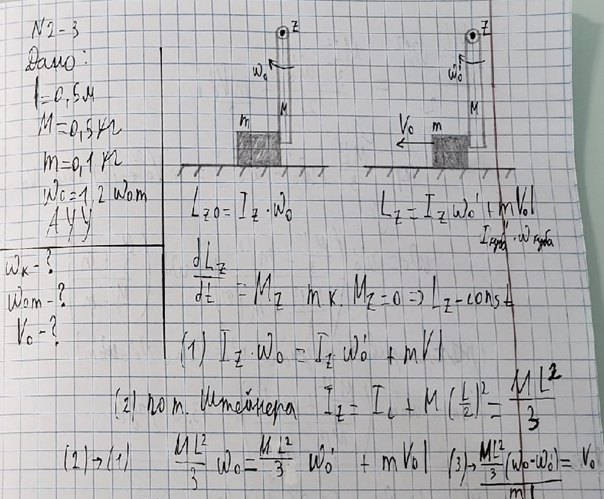 N2-3
Дано:
l=0,5м
M=0,5кг
m=0,1кг
ω₀=1,2 ω₀m
АУУ
ωк-?
ω₀m-?
V₀-?
Z
ω₀
M
m
Z
ω₀'
M
V₀
m
L_{z0} = I_z · ω₀
L_z = I_z ω₀' + mV₀l
I куба · ω куба
dL_z/dt = M_z т.к. M_z=0 => L_z-const
(1) I_z · ω₀ = I_z ω₀' + mVl
(2) по т. Штейнера I_z = I_c + M(L/2)² = ML²/3
(2)→(1) ML²/3 ω₀ = ML²/3 ω₀' + mV₀l (3)→ ML²/3 (ω₀-ω₀') / ml = V₀